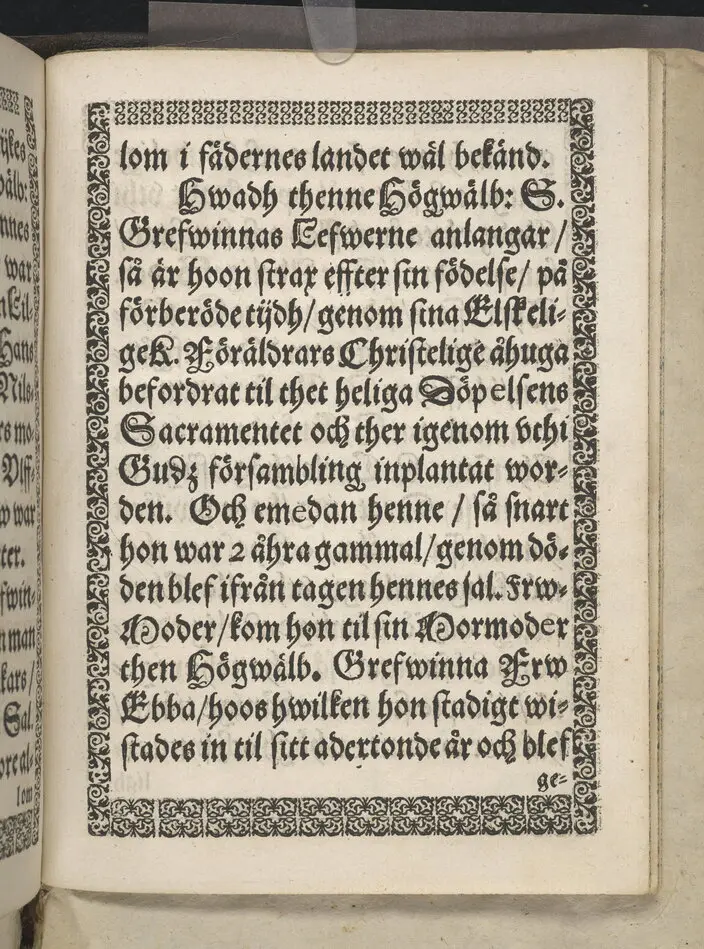 ijkes
wälb:
nnes
war
n Lil-
Hans
Nils-
rs mo-
Vlff-
w war
ter.
fwin-
n man
kars /
Sal.
ore al-
lom
lom i fädernes landet wäl bekänd.
Hwadh thenne Högwälb: S.
Grefwinnas Lefwerne anlangar /
så är hoon strax effter sin födelse / på
förberöde tijdh / genom sina Elskeli-
ge K. Föräldrars Christelige åhuga
befordrat til thet heliga Döpelsens
Sacramentet och ther igenom vthi
Gudz försambling inplantat wor-
den. Och emedan henne / så snart
hon war 2 åhra gammal / genom dö-
den blef ifrån tagen hennes sal. Frw-
Moder / kom hon til sin Mormoder
then Högwälb. Grefwinna Frw
Ebba / hoos hwilken hon stadigt wi-
stades in til sitt adertonde år och blef
ge-